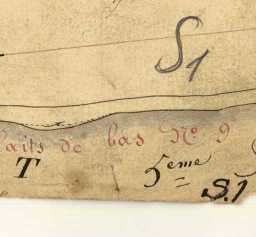 S1
faits de bas No 9
T 5eme
S.1